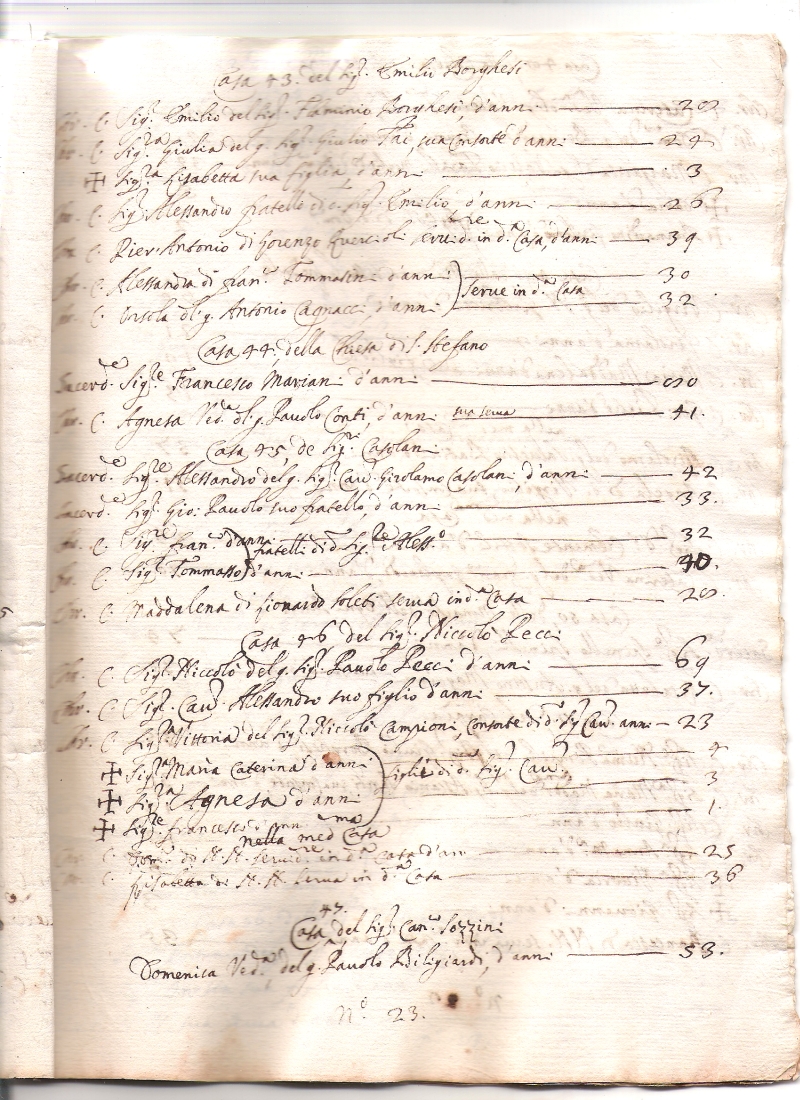 Casa 43. del Sig.r Emilio Borghesi
C. Sig.r Emilio del Sig.r Flaminio Borghesi, d'anni 28
C. Sig.ra Giulia del q. Sig.r Giulio Tai, sua Consorte d'anni 24
✠ Sig.ra Lisabetta sua figlia, d'anni 3
C. Sig.r Alessandro fratello Sig.r Emilio d'anni 26
C. Pier Antonio di Lorenzo serv.re in d.a Casa, d'anni 39
C. Alessandra di Fran.co Tommasini d'anni 30
serve in d.a Casa
C. Orsola del q. Antonio Cagnacci d'anni 32
Casa 44, della Chiesa di S. Stefano
Sacerd.e Sig.re Francesco Mariani d'anni
C. Agnesa Ved.a del q. Pavolo Conti, d'anni sua serva 41.
Casa 45, de Sig.ri Casolani
Sacerd.e Sig.re Alessandro del q. Sig.r Cav. Girolamo Casolani, d'anni 42
Sacerd.e Sig.r Gio: Pavolo suo fratello, d'anni 33.
C. Sig.re Fran.co d'anni 32
fratelli di d.o Sig.re Aless.o
C. Sig.r Tommaso d'anni 40.
C. Maddalena di Lionardo Soleti serva in d.a Casa 28
Casa 46 del Sig.r Niccolò Pecci
C. Sig.r Niccolò del q. Sig.r Pavolo Pecci d'anni 69
C. Sig.r Cav. Alessandro suo figlio d'anni 37.
C. Sig.ra Vittoria del Sig.r Niccolò Campioni, Consorte di d.o Sig.r Cav. anni 23
✠ Sig.ra Maria Caterina d'anni 4
figli di d.o Sig.r Cav.
✠ Sig.ra Agnesa d'anni 3
✠ Sig.re Francesco d'anni 1.
nella med.ma Casa
C. di N. N. serv.re in d.a Casa d'an 25
C. Lisabetta di N. N. serva in d.a Casa 36
47.
Casa del Sig.r Can.co Sozzini
Domenica Ved.a del q. Pavolo Biligiardi, d'anni 53.
N.o 23.